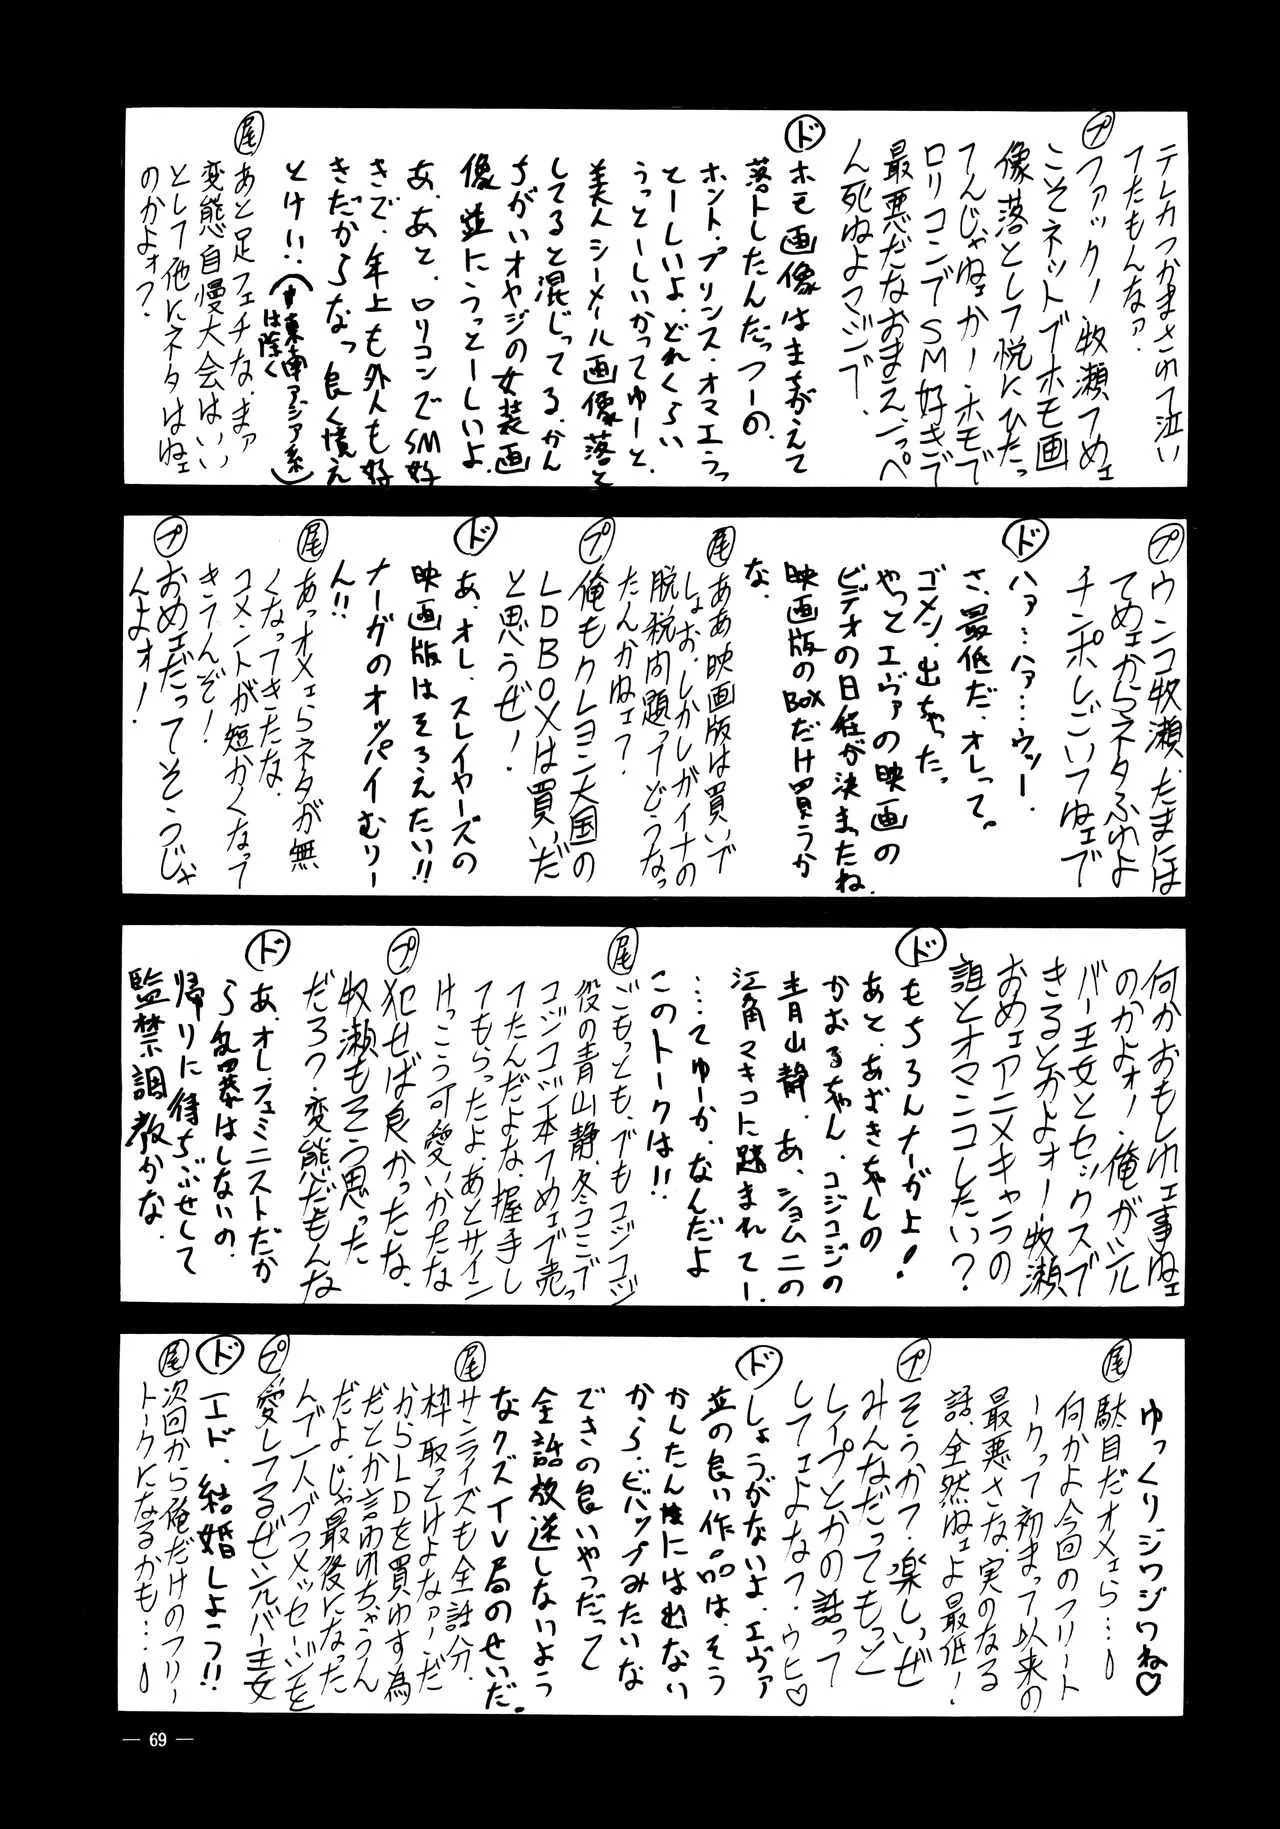 テレカつかまされて泣い
てたもんなァ.
プ
ファック!牧瀬てめェ
こそネットでホモ画
像落として悦にひたっ
てんじゃねェか!ホモで
ロリコンでSM好きで
最悪だなおまえ.いっぺ
ん死ねよマジで.
ド
ホモ画像はまちがえて
落トしたんだっつーの.
ホント.プリンス.オマエうっ
とーしいよ.どれくらい
うっとーしいかってゆーと.
美人シーメール画像落と
してると混じってる.かん
ちがいオヤジの女装画
像並にうっとーしいよ.
あ、あと、ロリコンでSM好
きで、年上も外人も好
きだからなっ良く憶え
とけ!!(東南アジア系
は除く)
尾
あと足フェチな.まァ
変態自慢大会はいい
として他にネタはねェ
のかよォ?.
プ
ウンコ牧瀬.たまには
てめェからネタふれよ
チンポしごいてねェで
ド
ハァ…ハァ…ウッー.
さ、最低だ.オレって。
ゴメン.出ちゃった
やっとエヴァの映画の
ビデオの日程が決まったね.
映画版のBOXだけ買うか
な.
尾
ああ映画版は買いで
しょお.しかしガイナの
脱税問題ってどうなっ
たんかねェ?
プ
俺もクレヨン大国の
LDBOXは買いだ
と思うぜ!
ド
あ、オレ.スレイヤーズの
映画版はそろえたい!!
ナーガのオッパイむりー
ん!!
尾
あっオメェらネタが無
くなってきたな.
コメントが短かくなって
きてんぞ!
プ
おめェだってそうじゃ
んよォ!
何かおもしれェ事ねェ
のかよォ!俺がシル
バー王女とセックスで
きるとかよォー牧瀬
おめェアニメキャラの
誰とオマンコしたい?
ド
もちろんナーガよ!
あと、あずきちゃんの
かおるちゃん.コジコジの
青山静.あ、ショムニの
江角マキコに踏まれてー.
…てゆーか.なんだよ
このトークは!!
尾
ごもっとも.でもコジコジ
役の青山静.冬コミで
コジコジ本てめェで売っ
てたんだよな.握手し
てもらったよ.あとサイン
けっこう可愛いかったな
プ
犯せば良かったな.
牧瀬もそう思った
だろ?.変態だもんな
ド
あ、オレ.フェミニストだか
ら乱暴はしないの.
帰りに待ちぶせして
監禁調教かな
ゆっくりジワジワね♡
尾
駄目だオメェら…!
何かよ今回のフリート
ークって初まって以来の
最悪さな.実のなる
話、全然ねェよ最低!
プ
そうか?.楽しいぜ
みんなだってもっと
レイプとかの話って
してェよな?.ウヒ♡
ド
しょうがないよ.エヴァ
並の良い作品は、そう
かんたんには出ない
から、ビバップみたいな
できの良いやつだって
全話放送しないよう
なクズTV局のせいだ。
尾
サンライズも全話分.
枠取っとけよなァ!だ
からLDを買わす為
だとか言われちゃうん
だよ.じゃ最後になった
んで一人づつメッセージを
プ
愛してるぜシルバー王女
ド
エド、結婚しよう!!
尾
次回から俺だけのフリー
トークになるかも…!
— 69 —